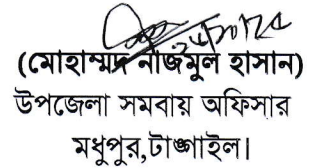 (মোহাম্মদ নাজমুল হাসান)
উপজেলা সমবায় অফিসার
মধুপুর,টাঙ্গাইল।